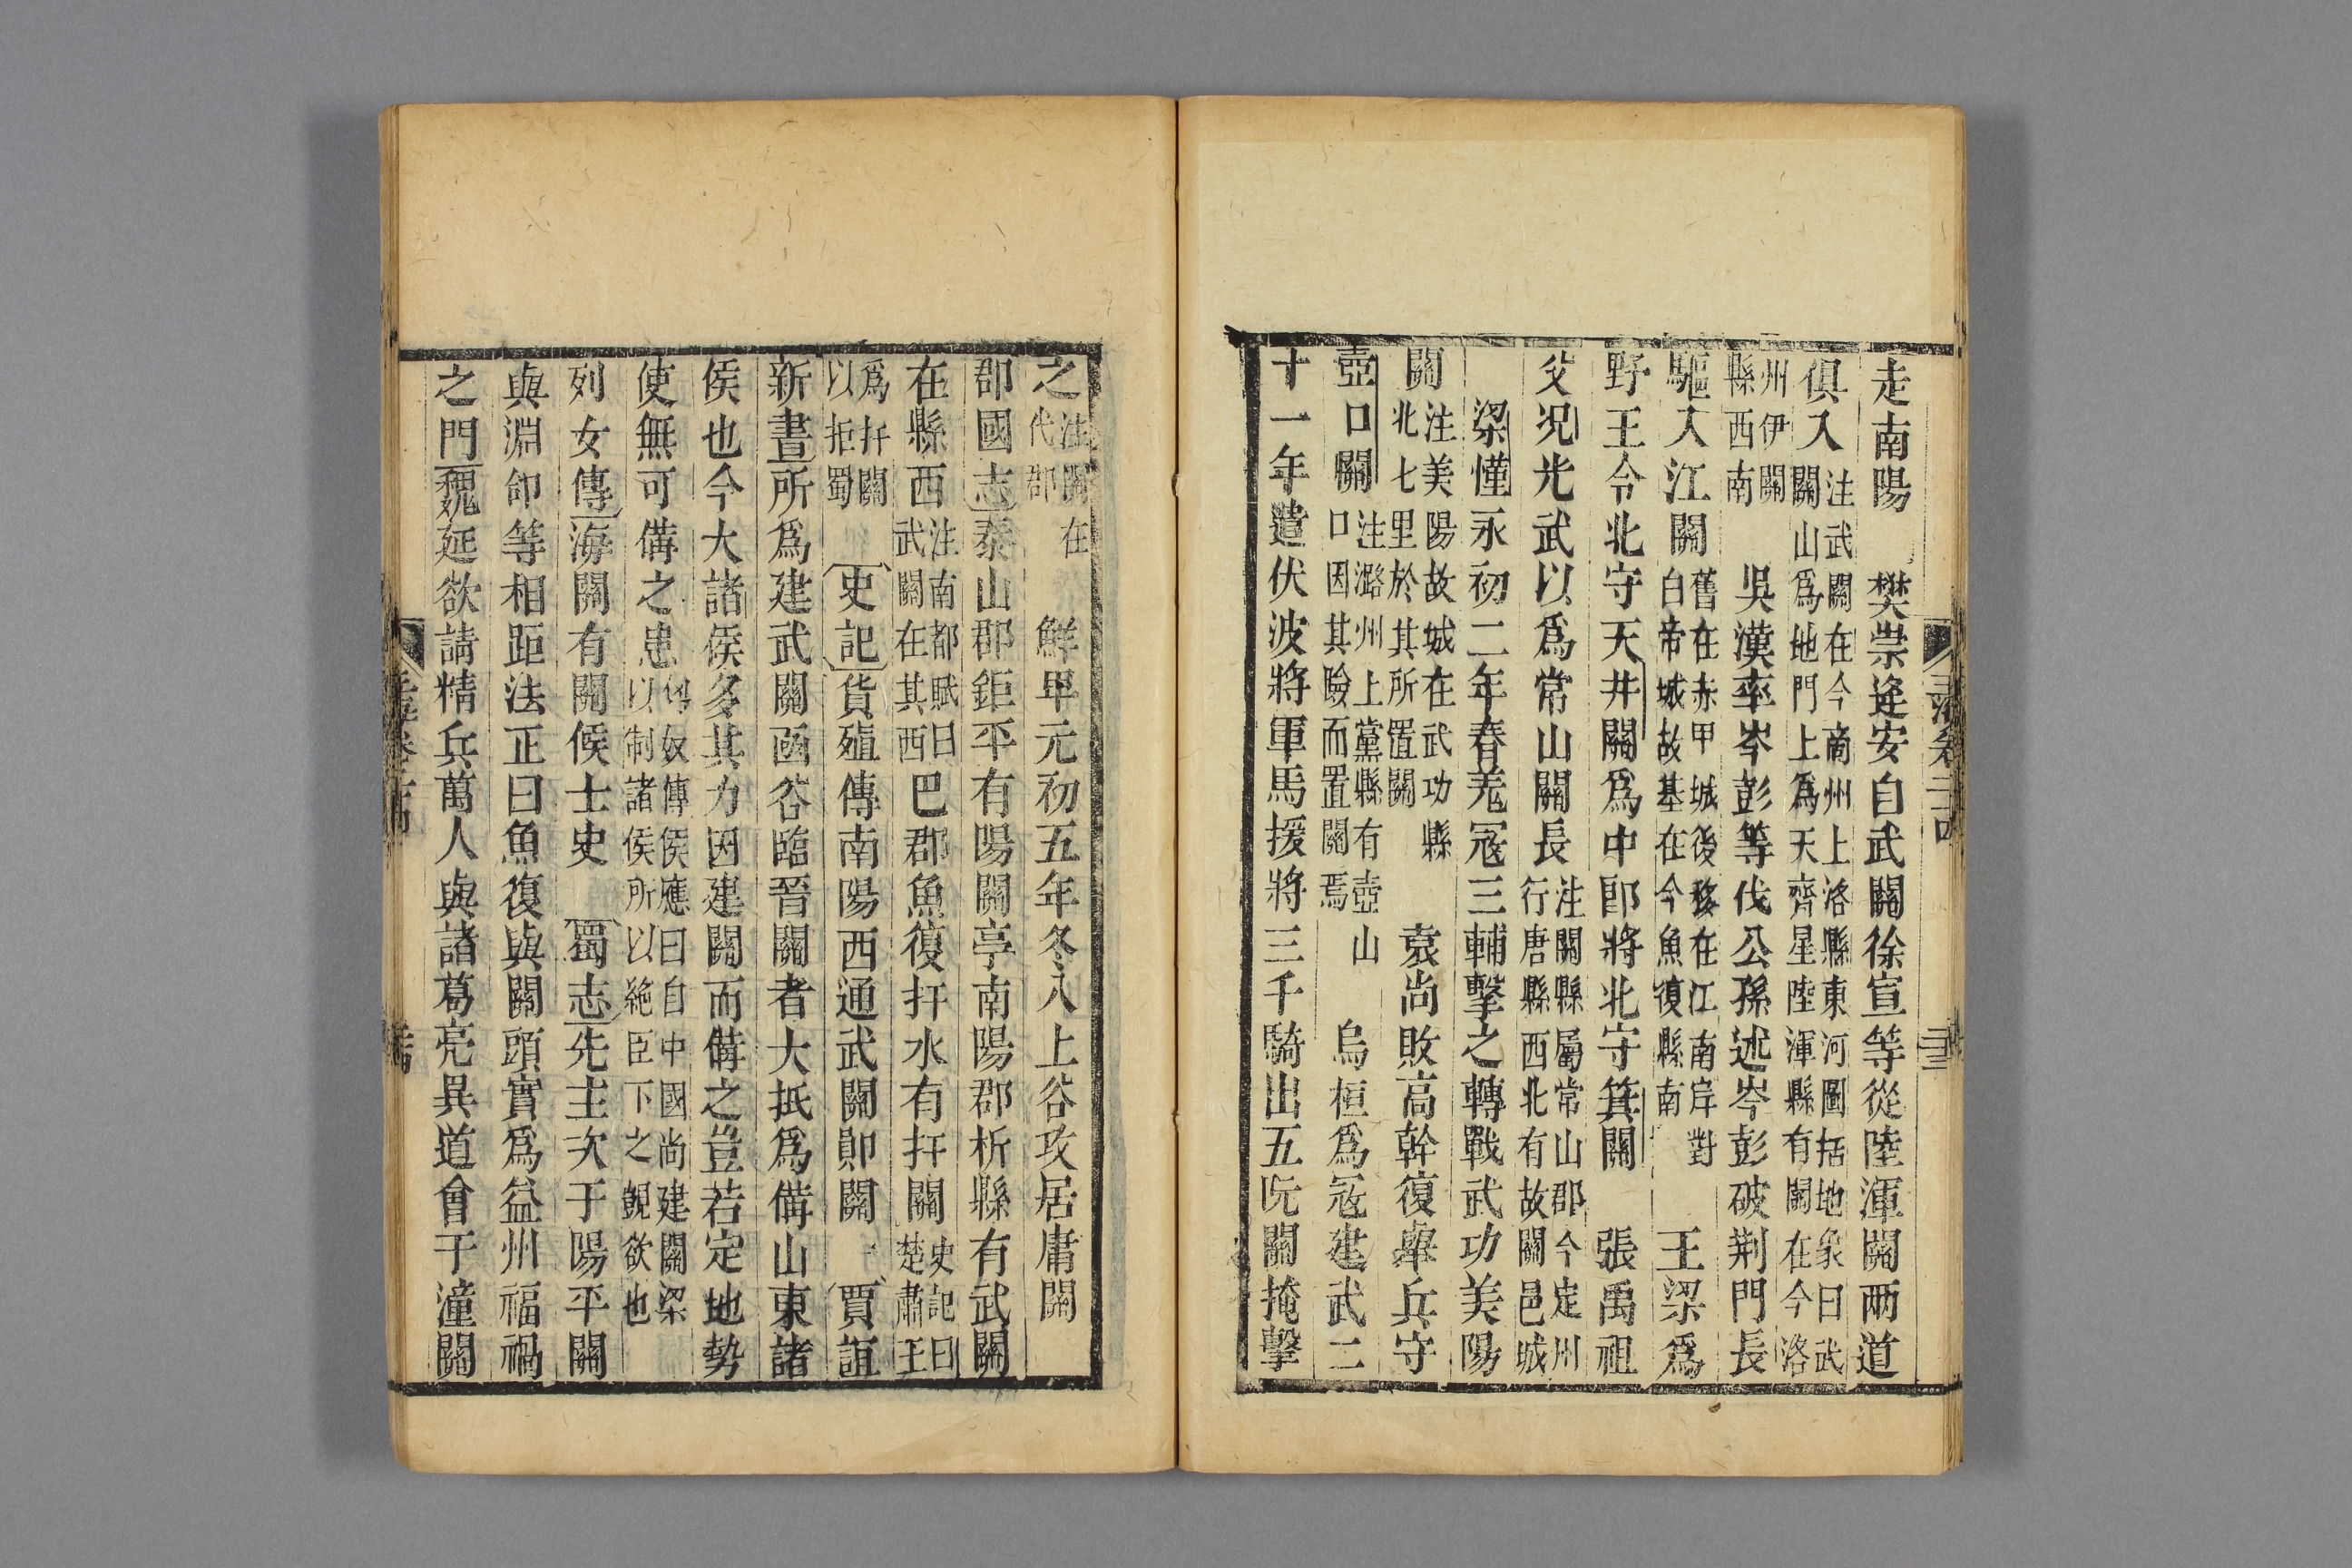 走南陽　樊崇逄安自武關徐宣等從陸渾關兩道
俱入注武關在今商州上洛縣東河圖括地象曰武關山爲地門上爲天齊星陸渾縣有關在今洛
州伊闕縣西南　吳漢率岑彭等伐公孫述岑彭破荆門長
驅入江關舊在赤甲城後移在江南岸對白帝城故基在今魚復縣南　王梁爲
野王令北守天井關爲中郎將北守箕關　張禹祖
父况光武以爲常山關長注關縣屬常山郡今定州行唐縣西北有故關邑城
梁慬永初二年春羌寇三輔擊之轉戰武功美陽
關注美陽故城在武功縣北七里於其所置關　袁尚敗高幹復舉兵守
壺口關注潞州上黨縣有壺山口因其險而置關焉　烏桓爲寇建武二
十一年遣伏波將軍馬援將三千騎出五阮關掩擊
之注關在代郡　鮮卑元初五年冬入上谷攻居庸關
郡國志泰山郡鉅平有陽關亭南陽郡析縣有武關
在縣西注南都賦曰武關在其西巴郡魚復扞水有扞關史記曰楚肅王
爲扞關以拒蜀　史記貨殖傳南陽西通武關鄖關　賈誼
新書所爲建武關函谷臨晉關者大抵爲備山東諸
侯也今大諸侯多其力因建關而備之豈若定地勢
使無可備之患匈奴傳侯應曰自中國尚建關梁以制諸侯所以絶臣下之覬欲也
列女傳海關有關候士吏　蜀志先主次于陽平關
與淵郃等相距法正曰魚復與關頭實爲益州福禍
之門魏延欲請精兵萬人與諸葛亮異道會于潼關